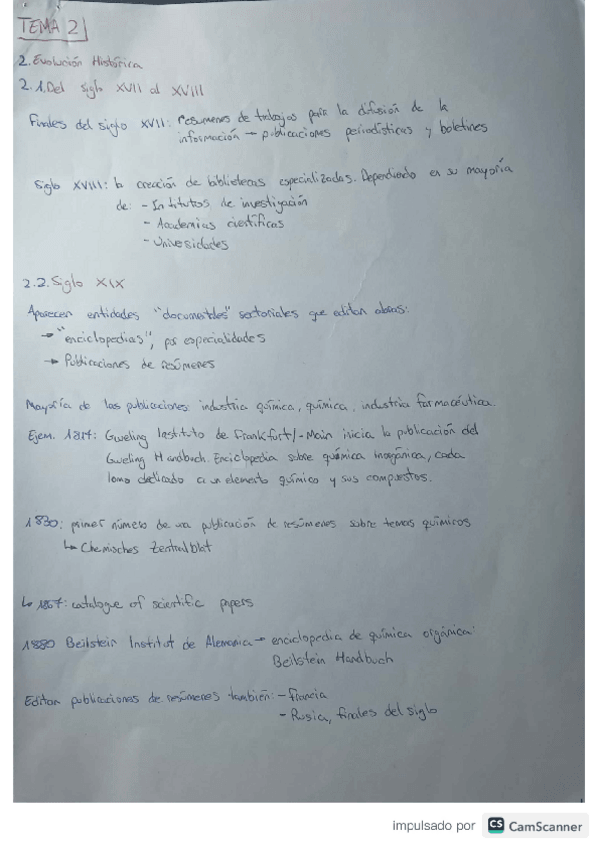 TEMA 2
2. Evolución Histórica
2.1. Del siglo XVII al XVIII
Finales del siglo XVII: resumenes de trabajos para la difusión de la
información → publicaciones periodísticas y boletines
Siglo XVIII: la creación de bibliotecas especializadas. Dependiendo en su mayoría
de: - Institutos de investigación
- Academias científicas
- Universidades
2.2. Siglo XIX
Aparecen entidades "documentales" sectoriales que editan obras:
→ "enciclopedias", por especialidades
→ Publicaciones de resúmenes
Mayoría de las publicaciones: industria química, química, industria farmacéutica.
Ejem. 1817: Gweling Instituto de Frankfort/-Main inicia la publicación del
Gweling Handbuch. Enciclopedia sobre química inorgánica, cada
tomo dedicado a un elemento químico y sus compuestos.
1830: primer número de una publicación de resúmenes sobre temas químicos
↳ Chemisches Zentralblat
↳ 1867: catalogue of scientific papers
1880 Beilstein Institut de Alemania → enciclopedia de química orgánica:
Beilstein Handbuch
Editan publicaciones de resúmenes también: - Francia
- Rusia, finales del siglo
impulsado por CS CamScanner